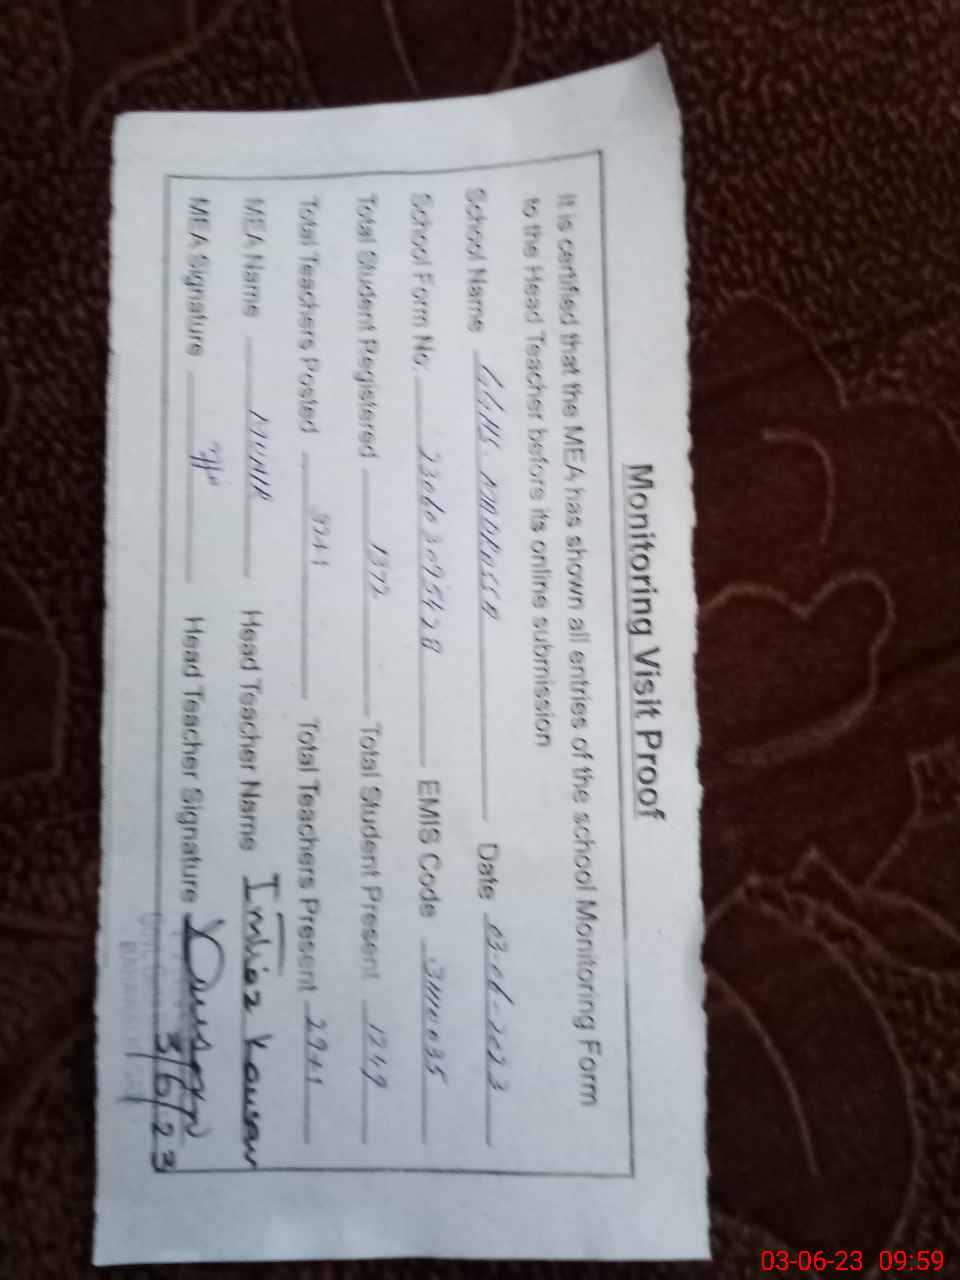 Monitoring Visit Proof
It is certified that the MEA has shown all entries of the school Monitoring Form
to the Head Teacher before its online submission
School Name GGHS. Date 03-06-2023
School Form No: EMIS Code
Total Student Registered 1372 Total Student Present 1249
Total Teachers Posted Total Teachers Present 29+1
MEA Name MUNIR Head Teacher Name Imtiaz Kousar
MEA Signature Head Teacher Signature
3/6/23
03-06-23 09:59